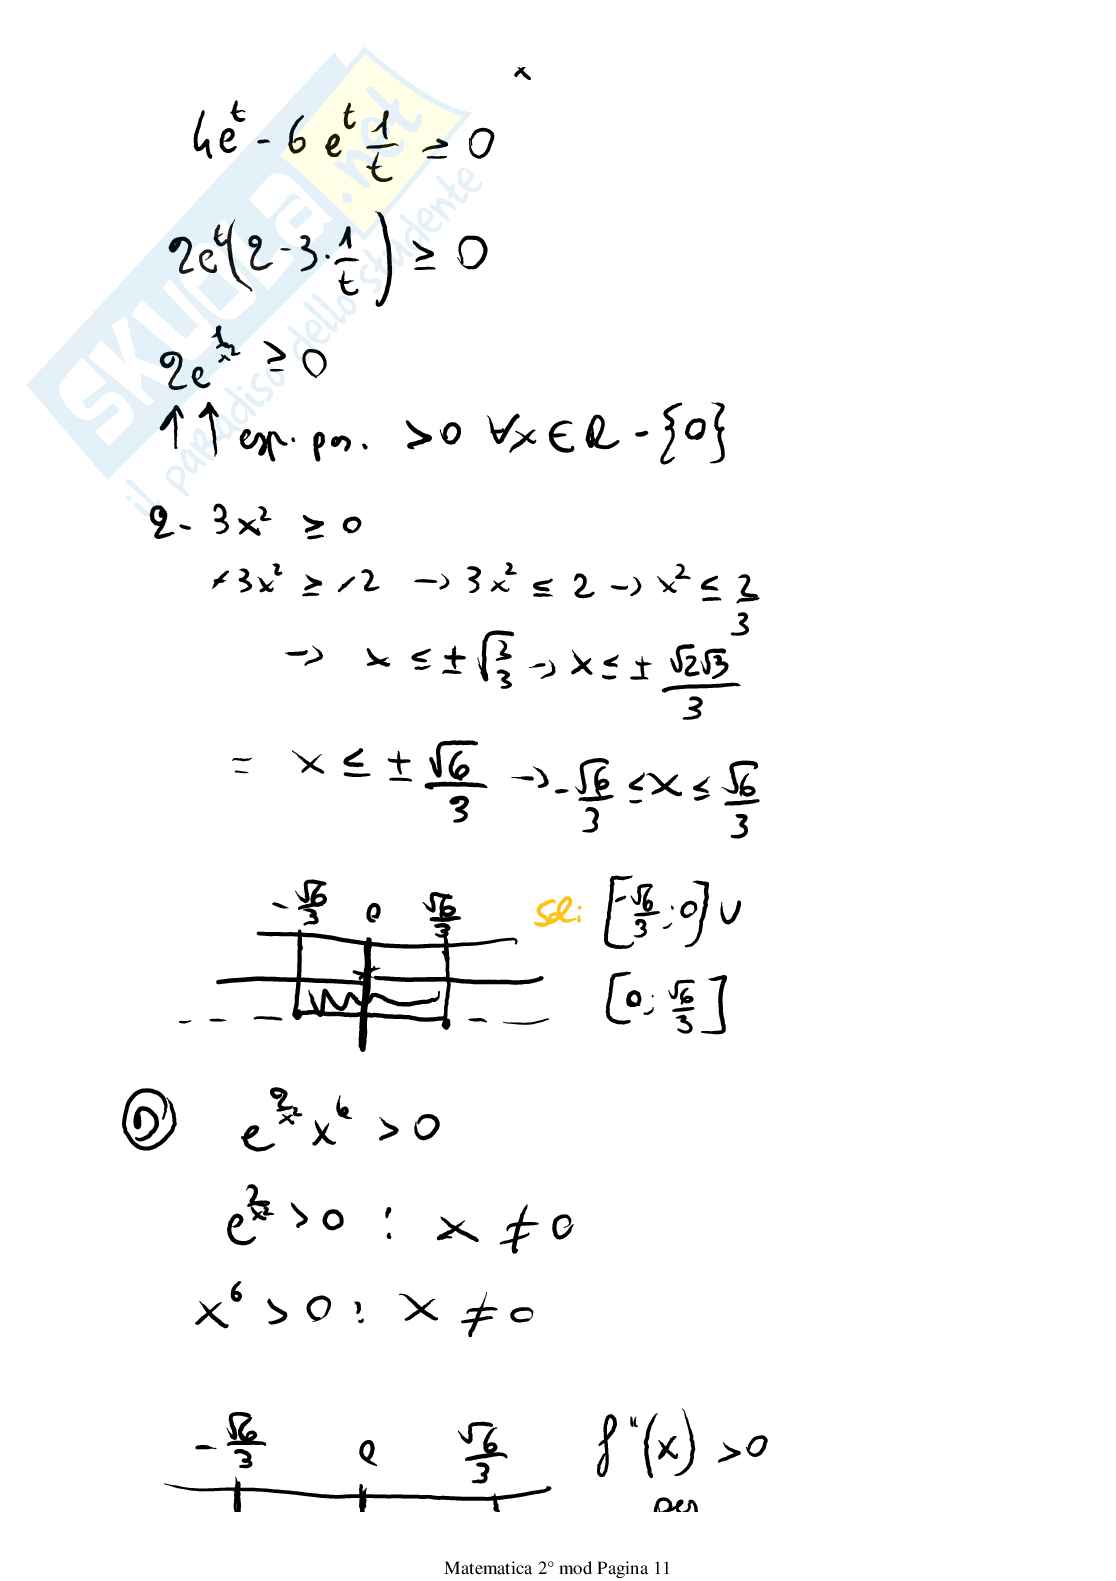 x
4e^t - 6 e^t 1/t ≥ 0
2e^t(2 - 3 · 1/t) ≥ 0
2e^(1/x²) ≥ 0
↑ ↑ esp. pos. > 0 ∀x ∈ R - {0}
2 - 3x² ≥ 0
-3x² ≥ -2 → 3x² ≤ 2 → x² ≤ 2/3
→ x ≤ ± √(2/3) → x ≤ ± √2√3/3
= x ≤ ± √6/3 → -√6/3 ≤ x ≤ √6/3
-√6/3 0 √6/3 Sol: [-√6/3 ; 0] ∪
[0 ; √6/3]
D e^(2/x²) x^6 > 0
e^(2/x²) > 0 : x ≠ 0
x^6 > 0 : x ≠ 0
-√6/3 0 √6/3 f"(x) > 0
per
Matematica 2° mod Pagina 11
SKUOLA.net
il paradiso dello studente